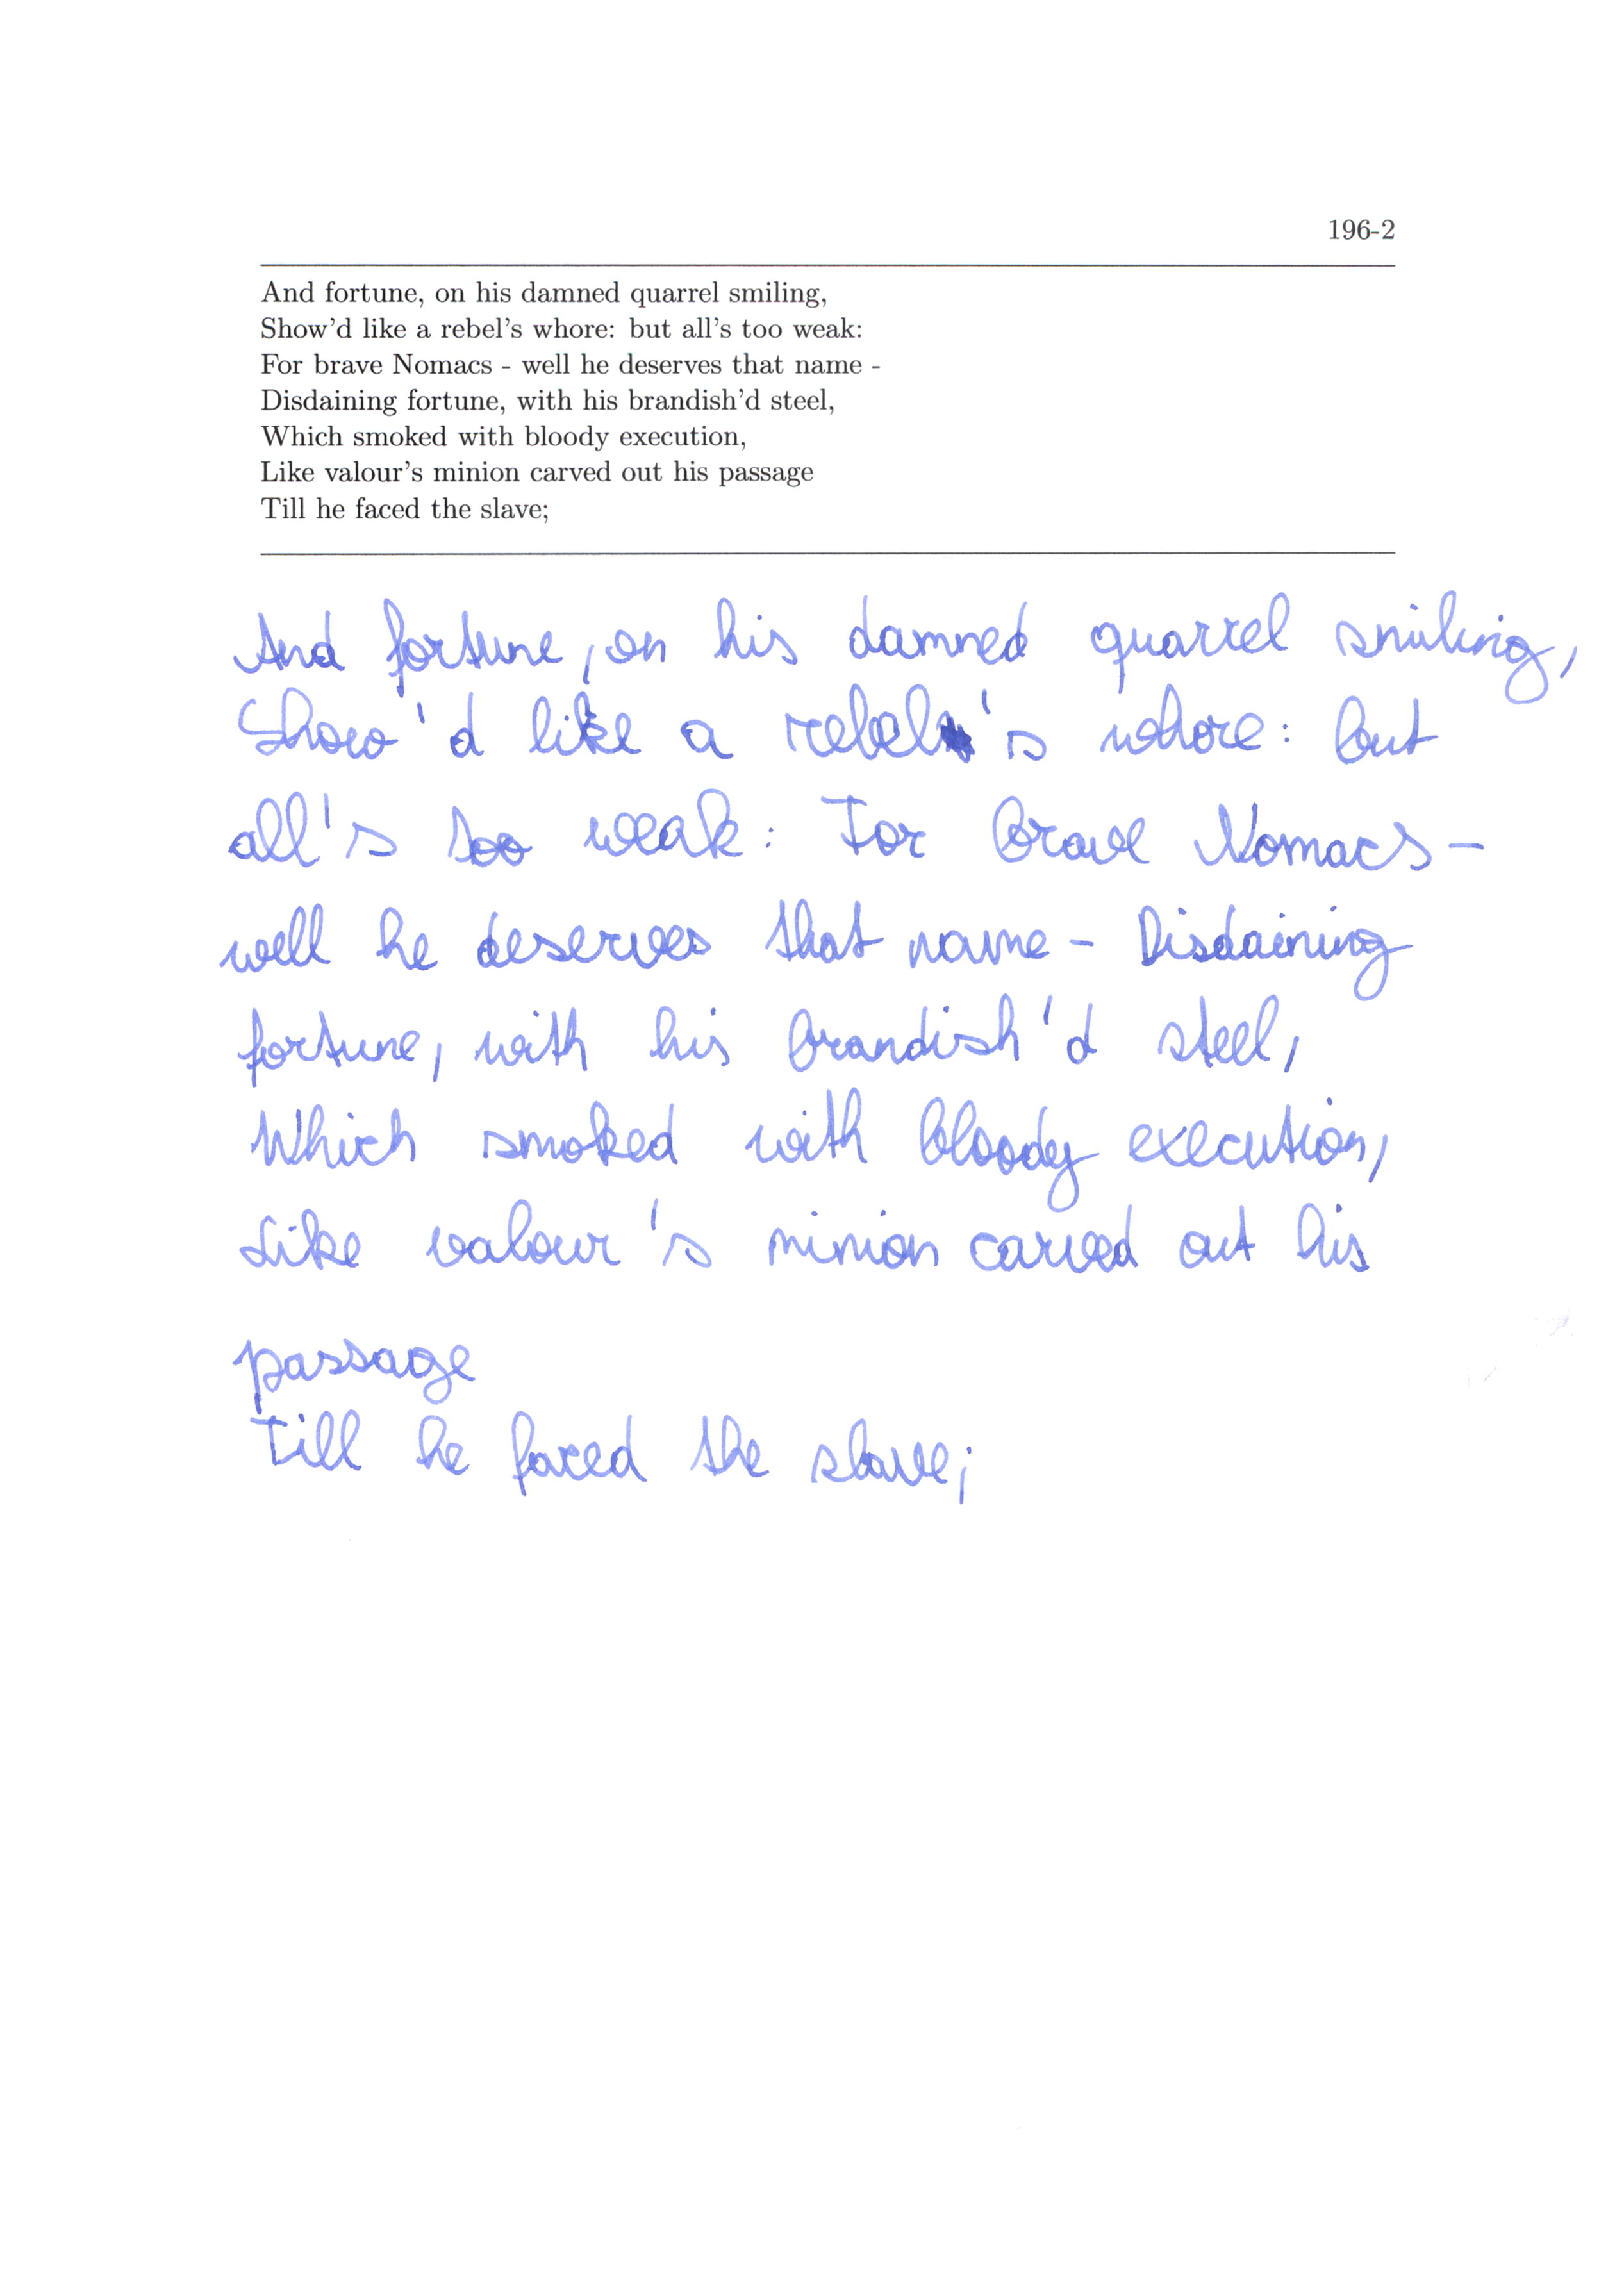 196-2
And fortune, on his damned quarrel smiling,
Show'd like a rebel's whore: but all's too weak:
For brave Nomacs - well he deserves that name -
Disdaining fortune, with his brandish'd steel,
Which smoked with bloody execution,
Like valour's minion carved out his passage
Till he faced the slave;
And fortune, on his damned quarrel smiling,
Show'd like a rebel's whore: but
all's too weak: For brave Nomacs -
well he deserves that name - Disdaining
fortune, with his brandish'd steel,
Which smoked with bloody execution,
Like valour's minion carved out his
passage
Till he faced the slave;